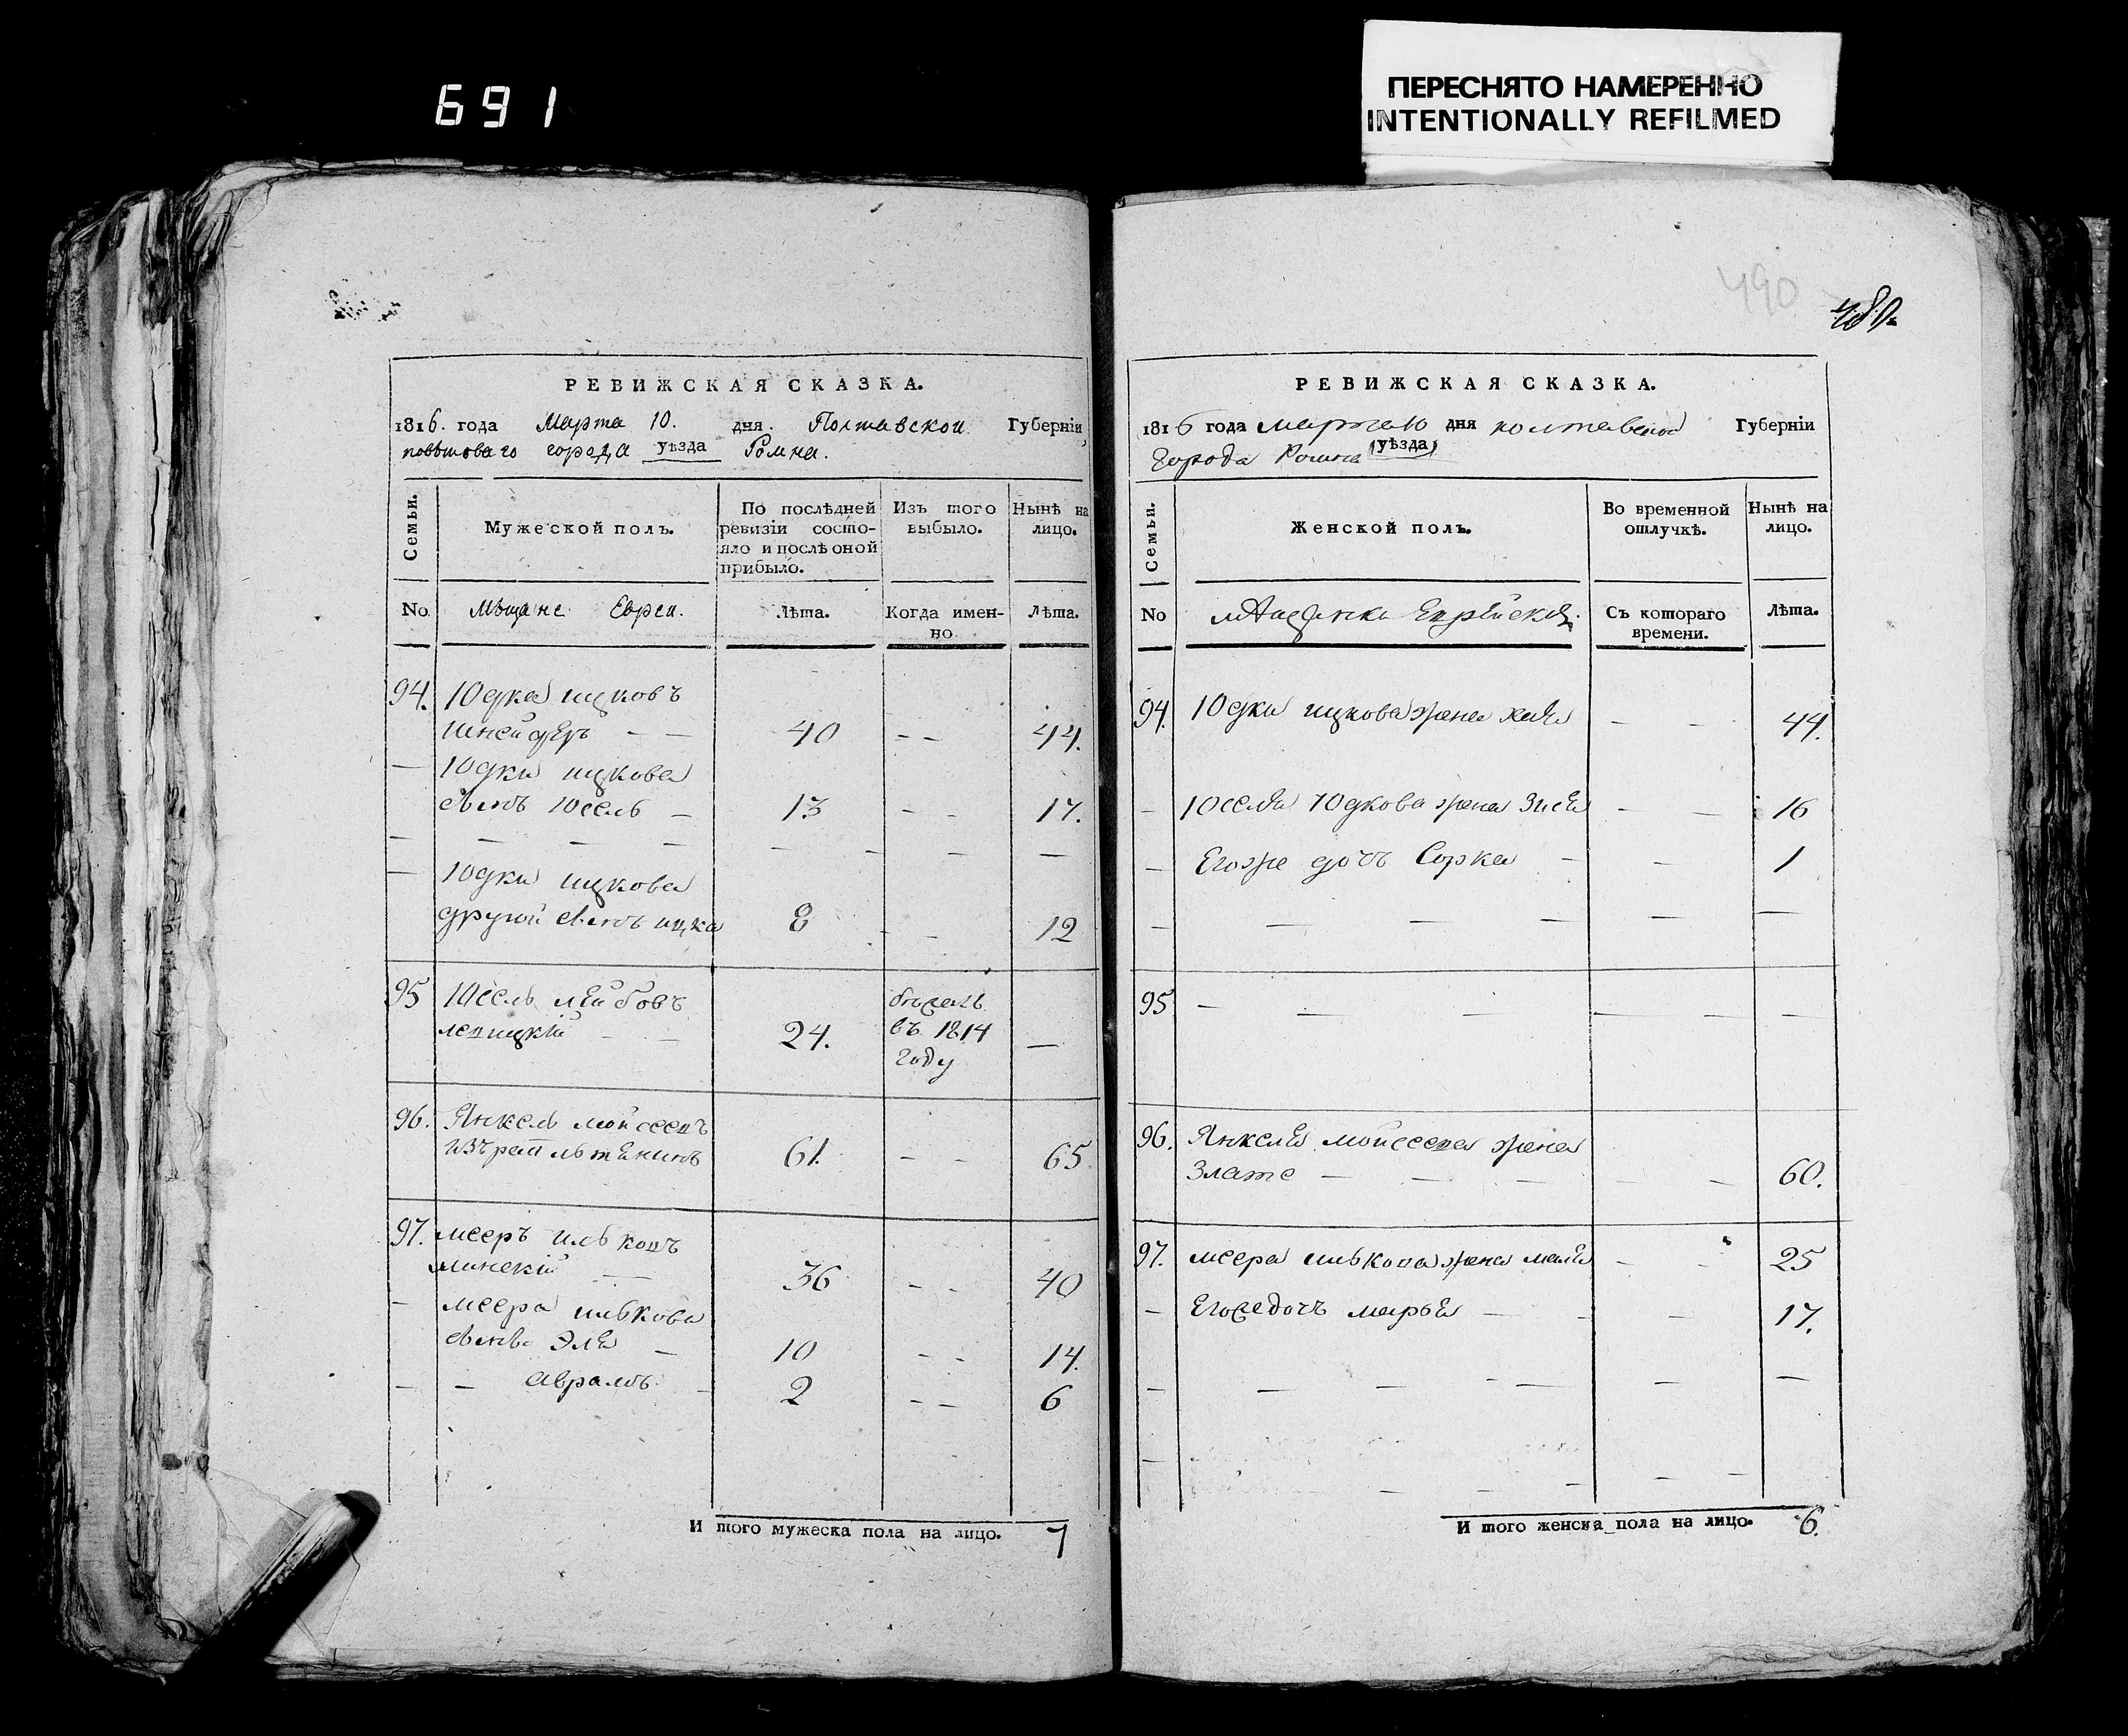 691
ПЕРЕСНЯТО НАМЕРЕННО
INTENTIONALLY REFILMED
490
480
РЕВИЖСКАЯ СКАЗКА.
1816. года Марта 10. дня. Полтавской Губерніи,
повѣтоваго города уѣзда Ромна.
Семьи.
Мужеской полъ.
По послѣдней
ревизіи состо-
яло и послѣ оной
прибыло.
Изъ того
выбыло.
Нынѣ на
лицо.
No
Мѣщане Евреи.
Лѣта.
Когда имен-
но
Лѣта.
94. Юдка ицковъ
шнейдеръ — — 40 — — 44.
— Юдки ицкова
сынъ Юсель — 13 — — 17.
— — — — — — — —
— Юдки ицкова
другой сынъ ицка 8 — — 12
95 Юсель лейбовъ
24. въ 1814 —
году
96. Янкель мойсеевъ
61. — — 65
97. мееръ ицковъ
минскій — 36 — — 40
— меера ицкова
сынъ Эля — 10 — — 14.
— — Аврамъ — 2 — — 6
И того мужеска пола на лицо. 7
РЕВИЖСКАЯ СКАЗКА.
1816 года марта 10 дня полтавской Губерніи
Города Ромна (уѣзда)
Семьи.
Женской полъ.
Во временной
отлучкѣ.
Нынѣ на
лицо.
No
мѣщанки Еврейския.
Съ котораго
времени.
Лѣта.
94. Юдки ицкова жена хая — — 44.
— Юселя Юдкова жена Зися — — 16
— Егоже дочь Сорка — — 1
— — — — — —
95 — — — — — —
96. Янкеля мойсеева жена
Злата — — — — — 60.
97. меера ицкова жена маля — — 25
— Егожедочь марья — — — 17.
— — — — — —
— — — — — —
И того женска пола на лицо. 6.